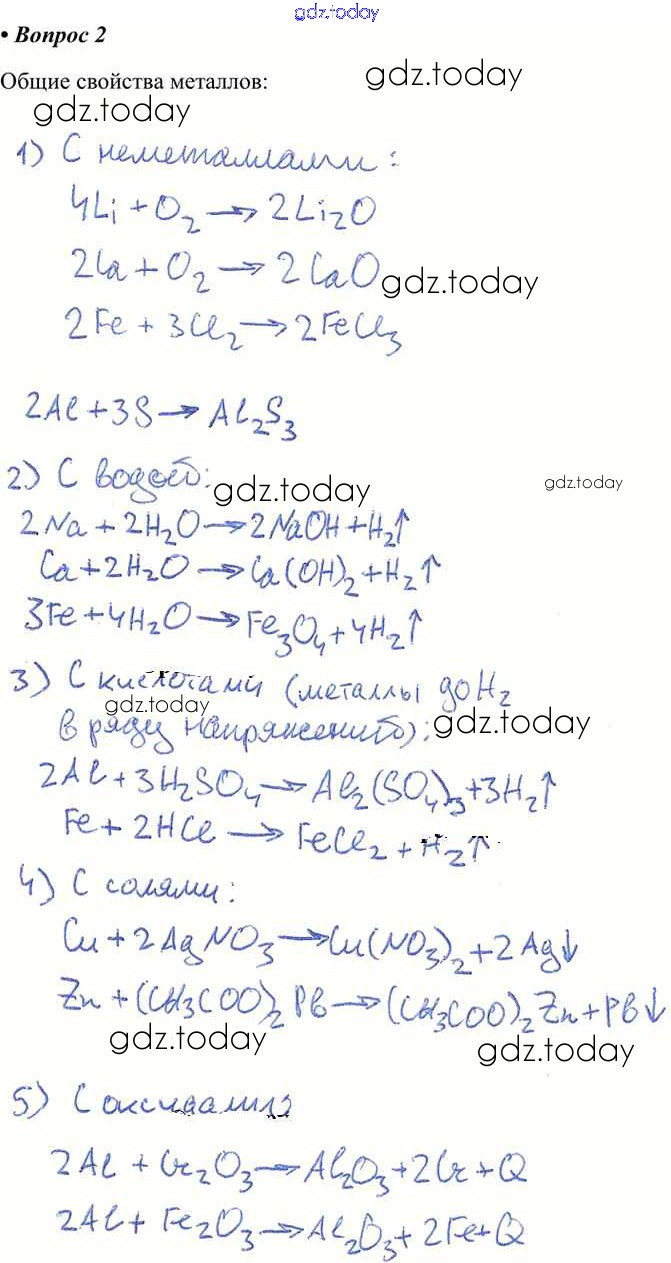 gdz.today
• Вопрос 2
gdz.today
Общие свойства металлов:
gdz.today
1) С неметаллами:
4Li + O₂ → 2Li₂O
2Ca + O₂ → 2CaO
gdz.today
2Fe + 3Cl₂ → 2FeCl₃
2Al + 3S → Al₂S₃
2) С водой:
gdz.today
gdz.today
2Na + 2H₂O → 2NaOH + H₂↑
Ca + 2H₂O → Ca(OH)₂ + H₂↑
3Fe + 4H₂O → Fe₃O₄ + 4H₂↑
3) С кислотами (металлы до H₂
gdz.today
в ряду напряжений):
gdz.today
2Al + 3H₂SO₄ → Al₂(SO₄)₃ + 3H₂↑
Fe + 2HCl → FeCl₂ + H₂↑
4) С солями:
Cu + 2AgNO₃ → Cu(NO₃)₂ + 2Ag↓
Zn + (CH₃COO)₂Pb → (CH₃COO)₂Zn + Pb↓
gdz.today
gdz.today
5) С оксидами:
2Al + Cr₂O₃ → Al₂O₃ + 2Cr + Q
2Al + Fe₂O₃ → Al₂O₃ + 2Fe + Q